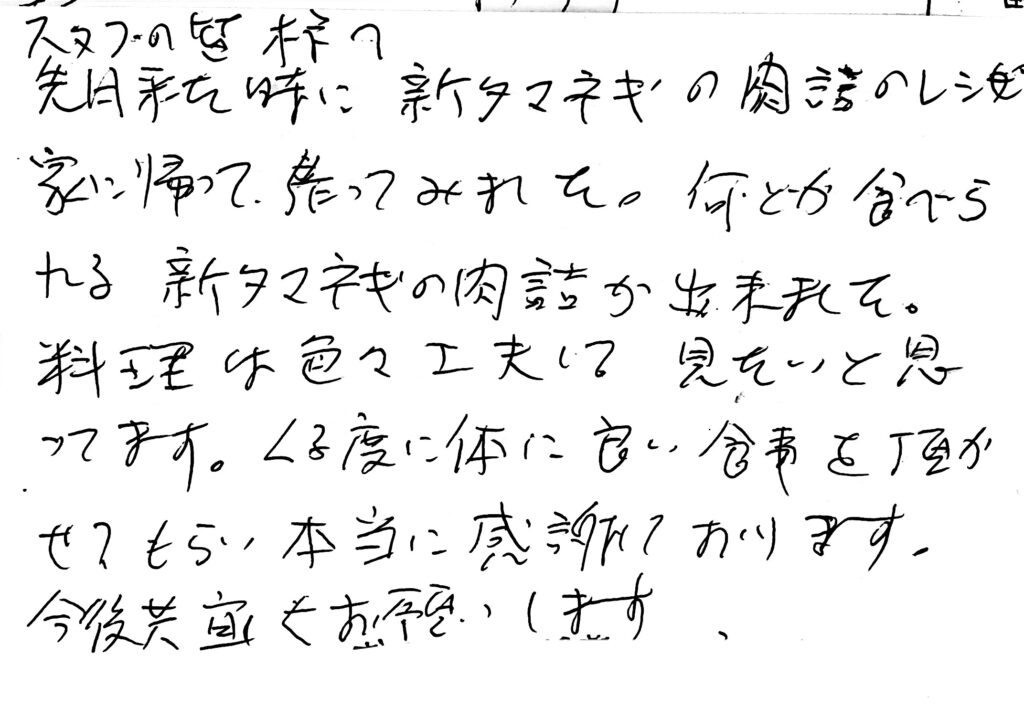 スタフの皆様へ
先日来た時に 新タマネギの肉詰のレシピ
家に帰って、作ってみました。何とか食べら
れる 新タマネギの肉詰が出来ました。
料理は色々工夫して 見たいと思
ってます。くる度に体に良い食事を頂か
せてもらい 本当に感謝しております。
今後共宜しくお願いします